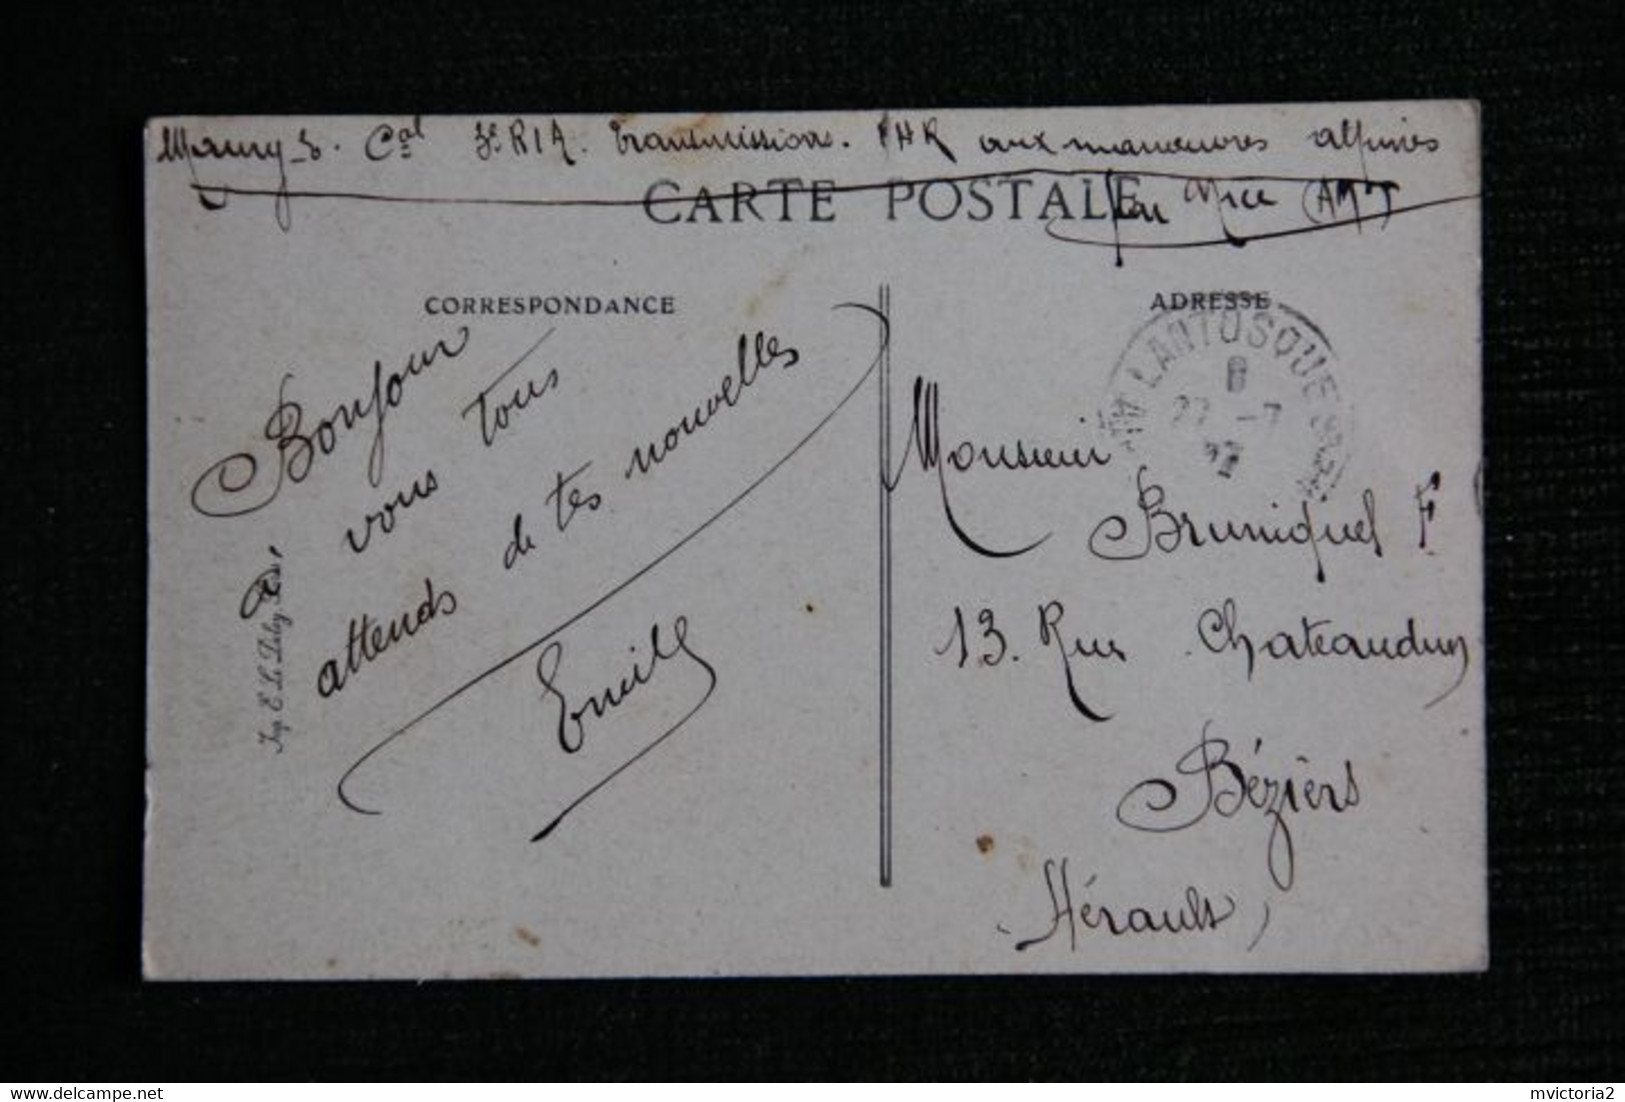 Maury E. Cal 3e RIA. transmissions. PHR aux manoeuvres alpines
par Nice (AMT)
CARTE POSTALE
CORRESPONDANCE
Bonjour
à vous tous
attends de tes nouvelles
Emile
Imp. E. Le Deley, Paris
ADRESSE
LANTOSQUE
27 -7
Monsieur
Bruniquel F
13. Rue Chateaudun
Béziers
Hérault
mvictoria2